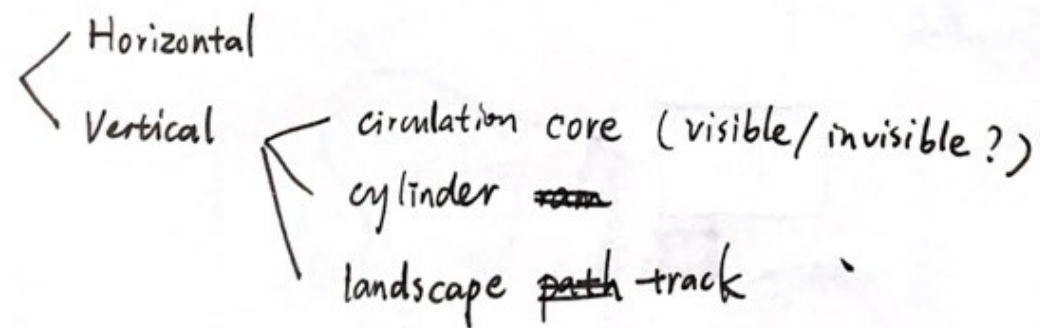 Horizontal
Vertical
circulation core (visible/invisible?)
cylinder
landscape path track